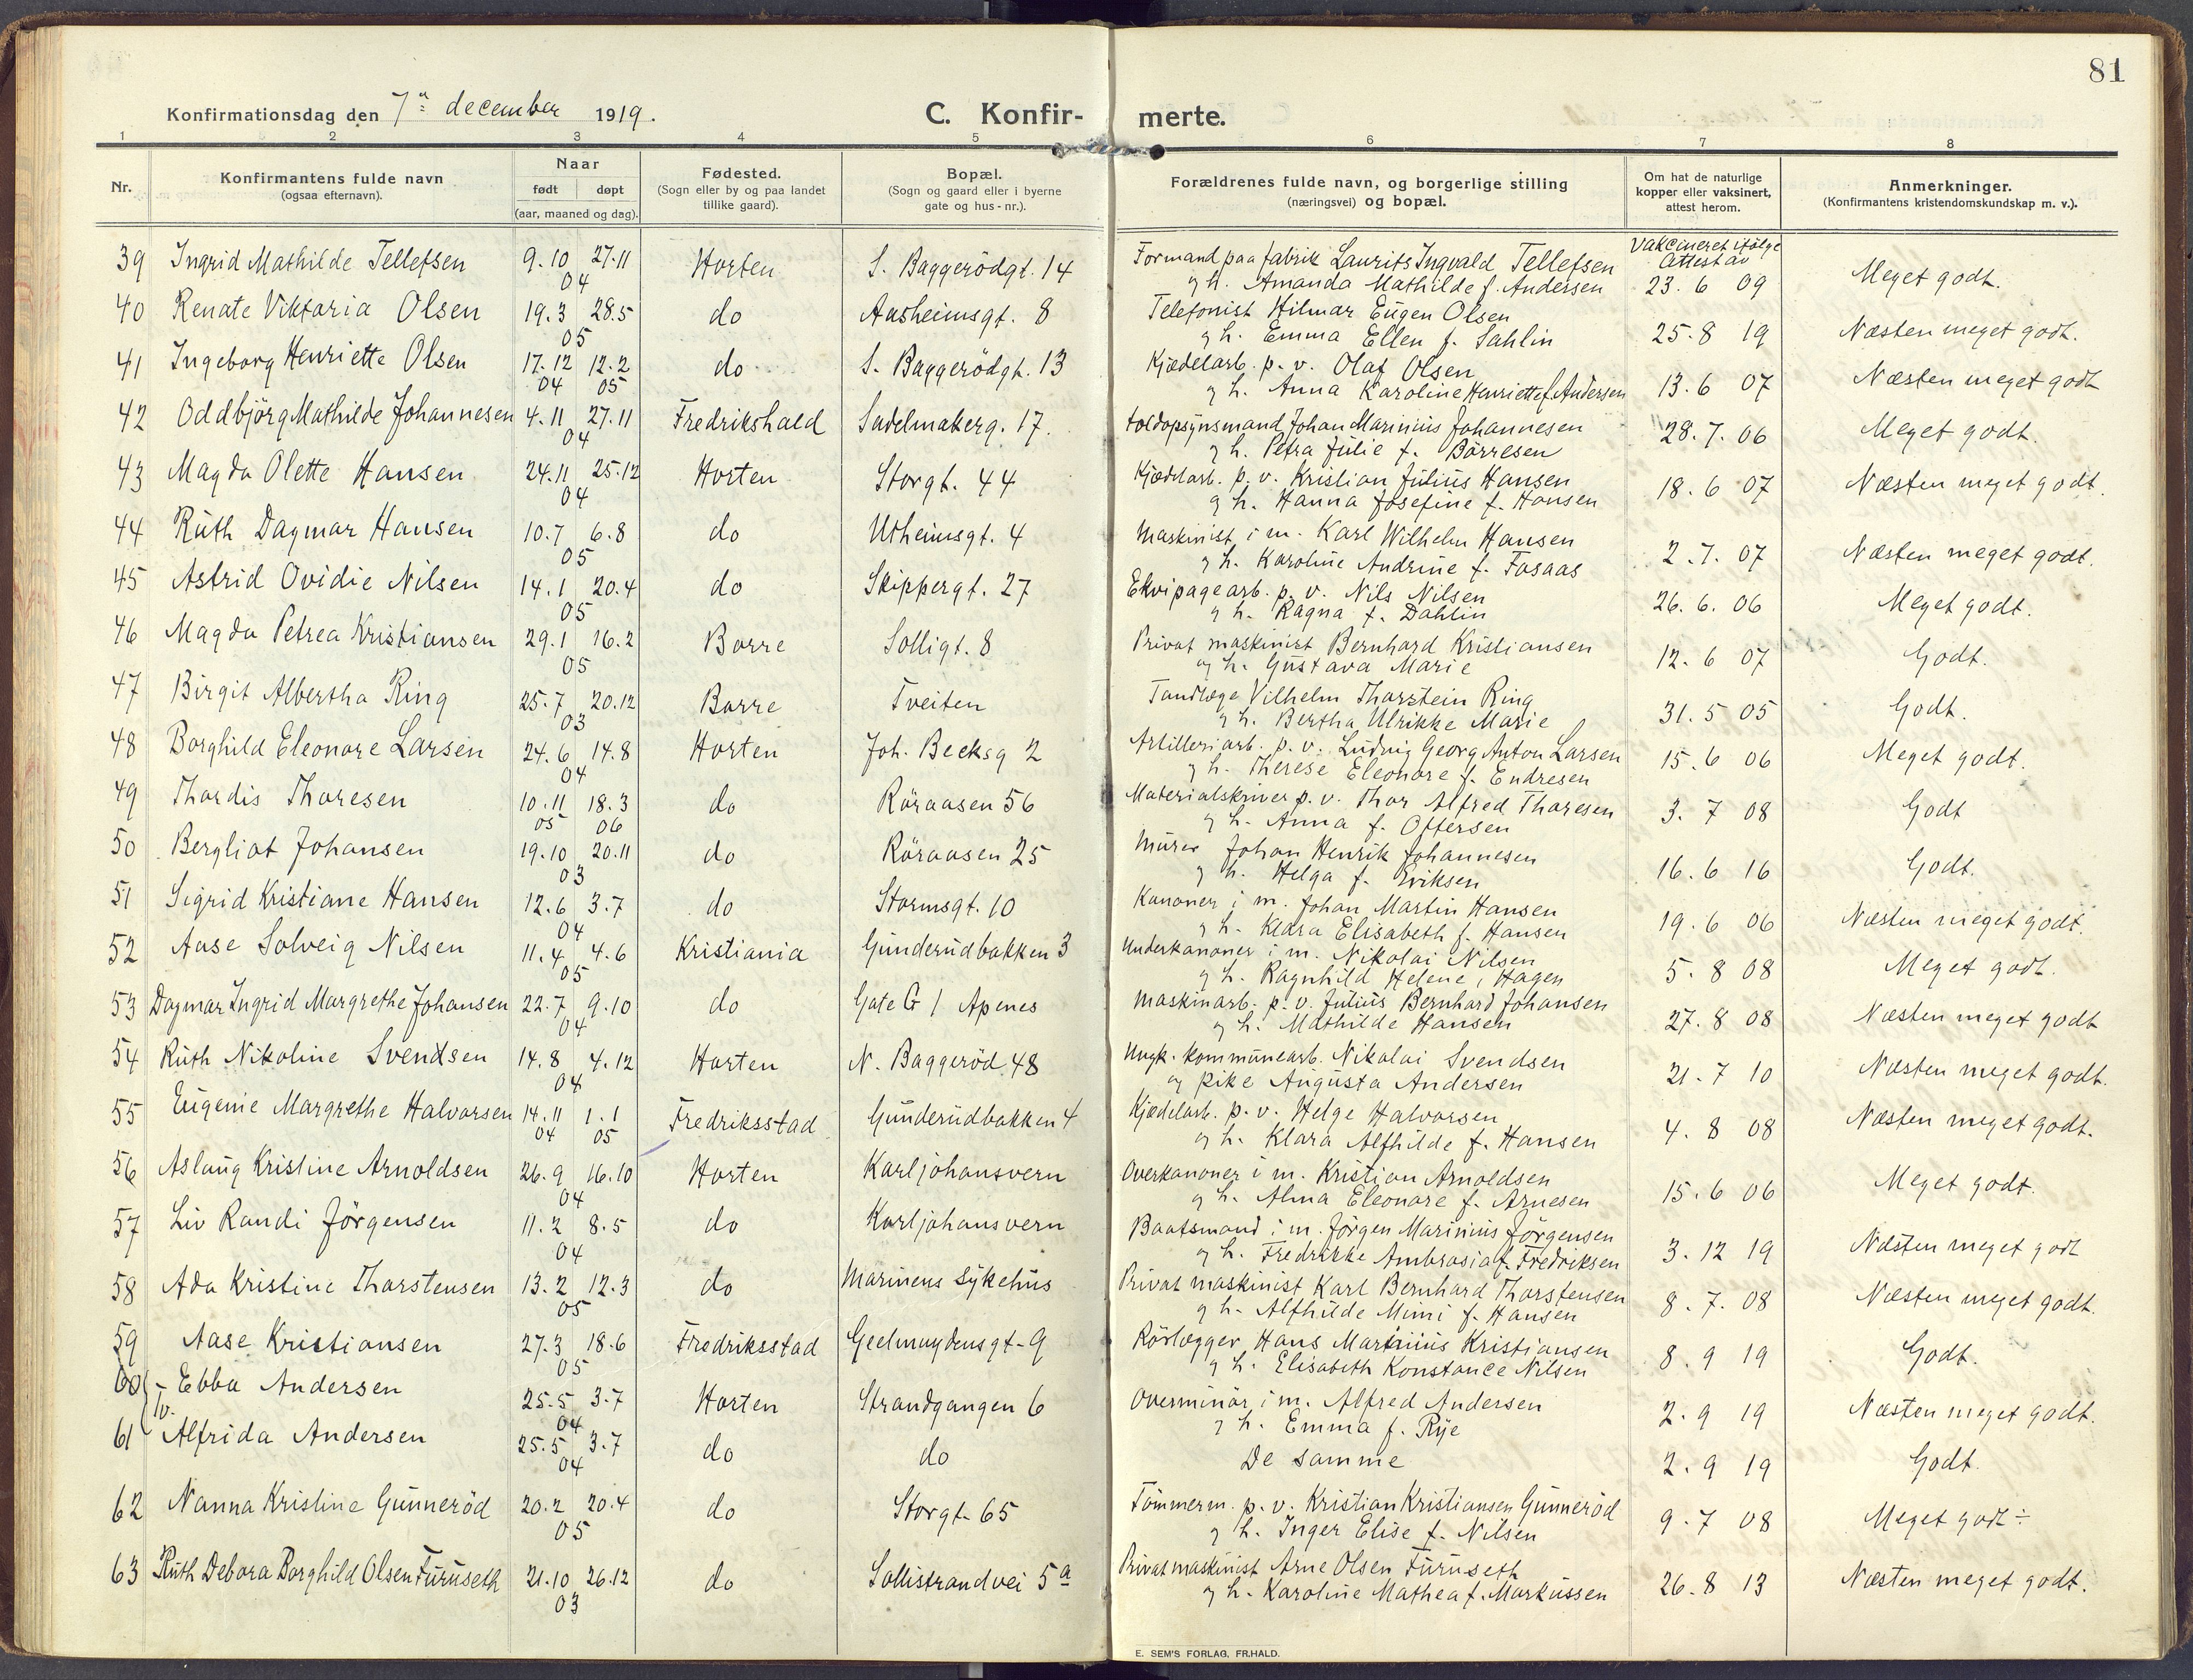 81
Konfirmationsdag den 7de december 1919.
C. Konfir- merte.
1 2 3 4 5 6 7 8
Nr.
Konfirmantens fulde navn (ogsaa efternavn).
Naar født døpt (aar, maaned og dag).
Fødested. (Sogn eller by og paa landet tillike gaard).
Bopæl. (Sogn og gaard eller i byerne gate og hus-nr.).
Forældrenes fulde navn, og borgerlige stilling (næringsvei) og bopæl.
Om hat de naturlige kopper eller vaksinert, attest herom.
Anmerkninger. (Konfirmantens kristendomskundskap m. v.).
Vakcineret ifølge Attest av
39 Ingrid Mathilde Tellefsen 9.10 27.11 04 Horten S. Baggerödgt. 14 Formand paa fabrik Laurits Ingvald Tellefsen
og h. Amanda Mathilde f. Andersen 23. 6 09 Meget godt.
40 Renate Viktoria Olsen 19.3 28.5 05 do Aasheimsgt. 8 Telefonist Hilmar Eugen Olsen
og h. Emma Ellen f. Sahlin 25.8 19 Næsten meget godt.
41 Ingeborg Henriette Olsen 17.12 04 12.2 05 do S. Baggerödgt. 13 Kjædelarb. p. v. Olaf Olsen
og h. Anna Karoline Henriette f. Andersen 13.6 07 Næsten meget godt
42 Oddbjörg Mathilde Johannesen 4.11 27.11 04 Fredrikshald Sadelmakerg. 17. toldopsynsmand Johan Marinius Johannesen
og h. Petra Julie f. Börresen 28.7.06 Meget godt.
43 Magda Olette Hansen 24.11 25.12 04 Horten Storgt. 44 Kjædelarb. p. v. Kristian Julius Hansen
og h. Hanna Josefine f. Hansen 18.6 07 Næsten meget godt.
44 Ruth Dagmar Hansen 10.7 6.8 05 do Utheimsgt. 4 Maskinist i m. Karl Wilhelm Hansen
og h. Karoline Andrine f. Fosaas 2.7.07 Næsten meget godt.
45 Astrid Ovidie Nilsen 14.1 20.4 05 do Skippergt. 27 Ekvipagearb. p. v. Nils Nilsen
og h. Ragna f. Dahlin 26.6.06 Meget godt.
46 Magda Petrea Kristiansen 29.1 16.2 05 Borre Solligt. 8 Privat maskinist Bernhard Kristiansen
og h. Gustava Marie 12.6 07 Godt.
47 Birgit Albertha Ring 25.7 20.12 03 Borre Tveiten Tandlæge Vilhelm Thorstein Ring
og h. Bertha Ulrikke Marie 31.5 05 Godt.
48 Borghild Eleonore Larsen 24.6 14.8 04 Horten Joh. Becksg 2 Artilleriarb. p. v. Ludvig Georg Anton Larsen
og h. Therese Eleonore f. Endresen 15.6 06 Meget godt.
49 Thordis Thoresen 10.11 05 18.3 06 do Röraasen 56 Materialskriver p. v. Thor Alfred Thoresen
og h. Anna f. Ottersen 3.7 08 Godt
50 Bergliot Johansen 19.10 20.11 03 do Röraasen 25 Murer Johan Henrik Johannesen
og h. Helga f. Eriksen 16.6 16 Godt.
51 Sigrid Kristiane Hansen 12.6 3.7 04 do Stormsgt. 10 Kanoner i m. Johan Martin Hansen
og h. Klara Elisabeth f. Hansen 19.6 06 Næsten meget godt.
52 Aase Solveig Nilsen 11.4 4.6 05 Kristiania Gunderudbakken 3 Underkanoner i m. Nikolai Nilsen
og h. Ragnhild Helene, Hagen 5.8 08 Meget godt.
53 Dagmar Ingrid Margrethe Johansen 22.7 9.10 04 do Gate G 1 Apenes Maskinarb. p. v. Julius Bernhard Johansen
og h. Mathilde Hansen 27.8 08 Næsten meget godt
54 Ruth Nikoline Svendsen 14.8 4.12 04 Horten N. Baggeröd 48 Ungk. kommunearb. Nikolai Svendsen
og pike Augusta Andersen 21.7 10 Næsten meget godt.
55 Eugenie Margrethe Halvorsen 14.11 04 1.1 05 Fredriksstad Gunderudbakken 4 Kjædelarb. p. v. Helge Halvorsen
og h. Klara Alfhilde f. Hansen 4.8 08 Næsten meget godt.
56 Aslaug Kristine Arnoldsen 26.9 16.10 04 Horten Karljohansvern Overkanoner i m. Kristian Arnoldsen
og h. Alma Eleonore f. Arnesen 15.6 06 Meget godt.
57 Liv Randi Jörgensen 11.2 8.5 04 do Karljohansvern Baatsmand i m. Jörgen Marinius Jörgensen
og h. Fredrikke Ambrosia f. Fredriksen 3.12 19 Næsten meget godt
58 Ada Kristine Thorstensen 13.2 12.3 05 do Marinens sykehus Privat maskinist Karl Bernhard Thorstensen
og h. Alfhilde Mimi f. Hansen 8.7.08 Næsten meget godt.
59 Aase Kristiansen 27.3 18.6 05 Fredriksstad Geelmuydensgt. 9 Rörlægger Hans Martinius Kristiansen
og h. Elisabeth Konstance Nilsen 8.9 19 Godt.
60 Ebba Andersen 25.5 3.7 04 Horten Strandgangen 6 Overminör i m. Alfred Andersen
og h. Emma f. Rye 2.9 19 Næsten meget godt.
61 Alfrida Andersen 25.5 3.7 04 do do De samme 2.9 19 Godt.
62 Nanna Kristine Gunneröd 20.2 20.4 05 do Storgt. 65 Tömmerm. p. v. Kristian Kristiansen Gunneröd
og h. Inger Elise f. Nilsen 9.7 08 Meget godt ÷
63 Ruth Debora Borghild Olsen Furuseth 21.10 26.12 03 do Sollistrandvei 5a Privat maskinist Arne Olsen Furuseth
og h. Karoline Mathea f. Markussen 26.8 13 Næsten meget godt.
E. SEM'S FORLAG, FR.HALD.